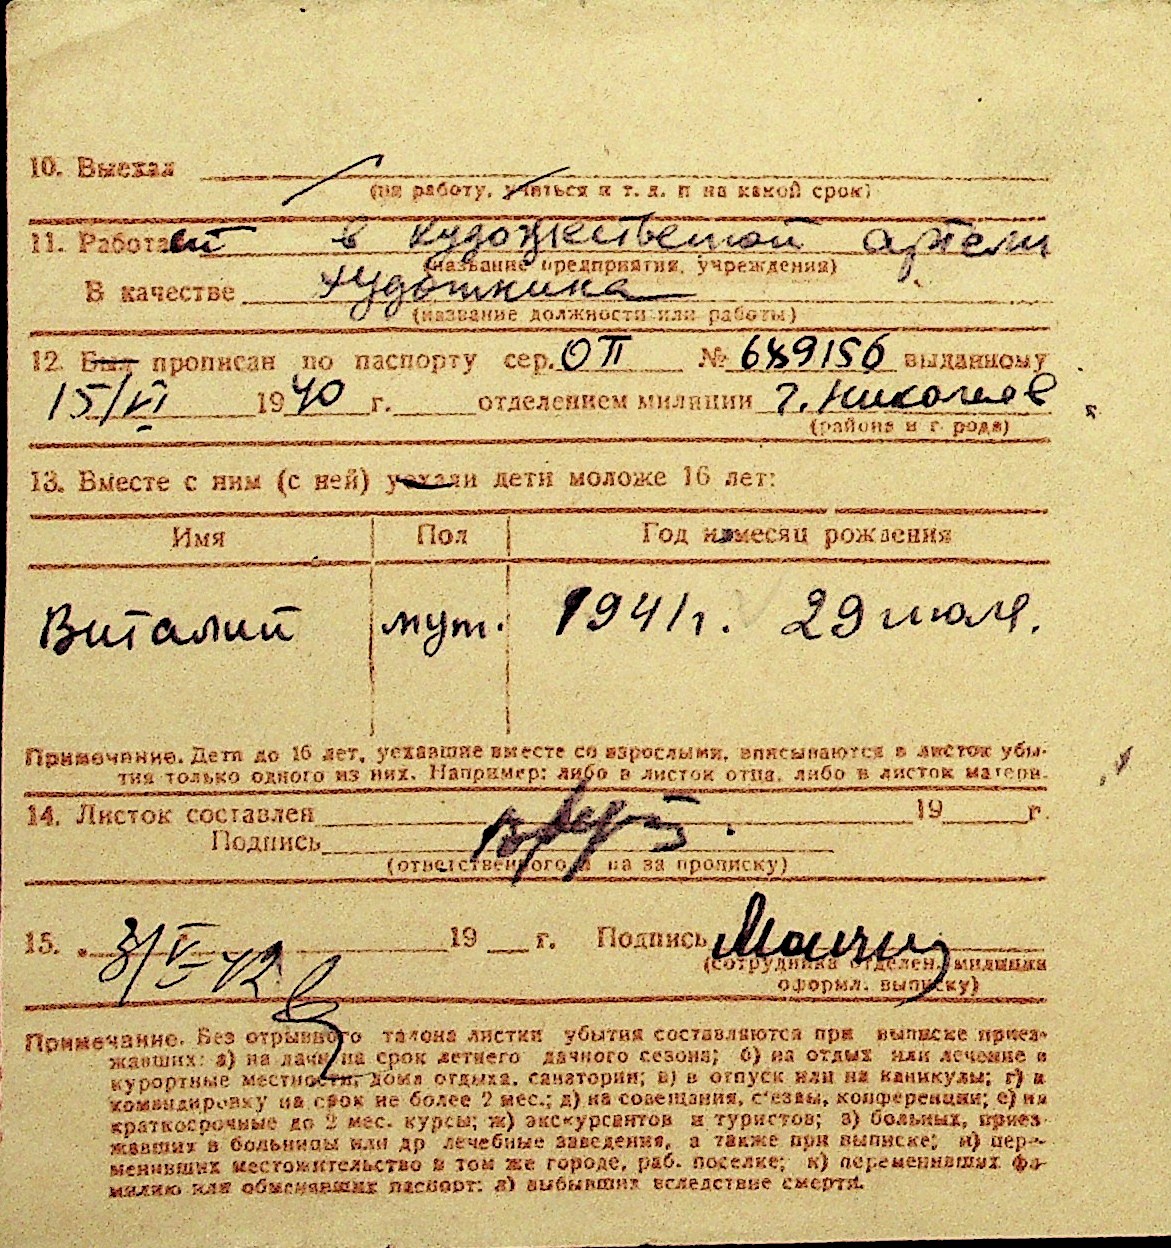 10. Выехал
(на работу, учиться и т. д. и на какой срок)
11. Работает в художественной артели
(название предприятия, учреждения)
В качестве художника
(название должности или работы)
12. Был прописан по паспорту сер. ОП № 689156 выданному
15/VI 1940 г. отделением милиции г. Николаев
(района и города)
13. Вместе с ним (с ней) уехали дети моложе 16 лет:
Имя Пол Год и месяц рождения
Виталий муж. 1941 г. 29 июля.
Примечание. Дети до 16 лет, уехавшие вместе со взрослыми, вписываются в листок убы-
тия только одного из них. Например: либо в листок отца, либо в листок матери.
14. Листок составлен 19 г.
Подпись
(ответственного за прописку)
15. 3/V-42 19 г. Подпись
(сотрудника отделен. милиции
оформл. выписку)
Примечание. Без отрывного талона листки убытия составляются при выписке приез-
жавших: а) на дачи на срок летнего дачного сезона; б) на отдых или лечение в
курортные местности, дома отдыха, санатории; в) в отпуск или на каникулы; г) в
командировку на срок не более 2 мес.; д) на совещания, с'езды, конференции; е) на
краткосрочные до 2 мес. курсы; ж) экскурсантов и туристов; з) больных, приез-
жавших в больницы или др лечебные заведения, а также при выписке; и) пере-
менивших местожительство в том же городе, раб. поселке; к) переменивших фа-
милию или обменявших паспорт; л) выбывших вследствие смерти.